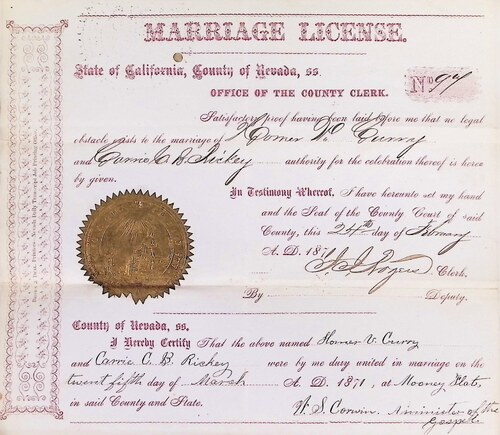 MARRIAGE LICENSE.
State of California, County of Nevada, ss.
OFFICE OF THE COUNTY CLERK.
No 97
Satisfactory proof having been laid before me that no legal
obstacle exists to the marriage of Homer V. Curry
and Carrie C. B. Rickey authority for the celebration thereof is hereby
by given.
In Testimony Whereof, I have hereunto set my hand
and the Seal of the County Court of said
County, this 24th day of February
A. D. 1871
Rogers Clerk.
By Deputy.
County of Nevada, ss.
I Hereby Certify That the above named Homer V. Curry
and Carrie C. B. Rickey were by me duly united in marriage on the
twenty fifth day of March A. D. 1871, at Mooney Flats
in said County and State.
W. S. Corwin, a minister of the
Gospel